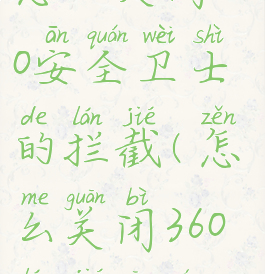 ān quán wèi shì
0安全卫士
de lán jié zěn
的拦截(怎
me guān bì
么关闭360